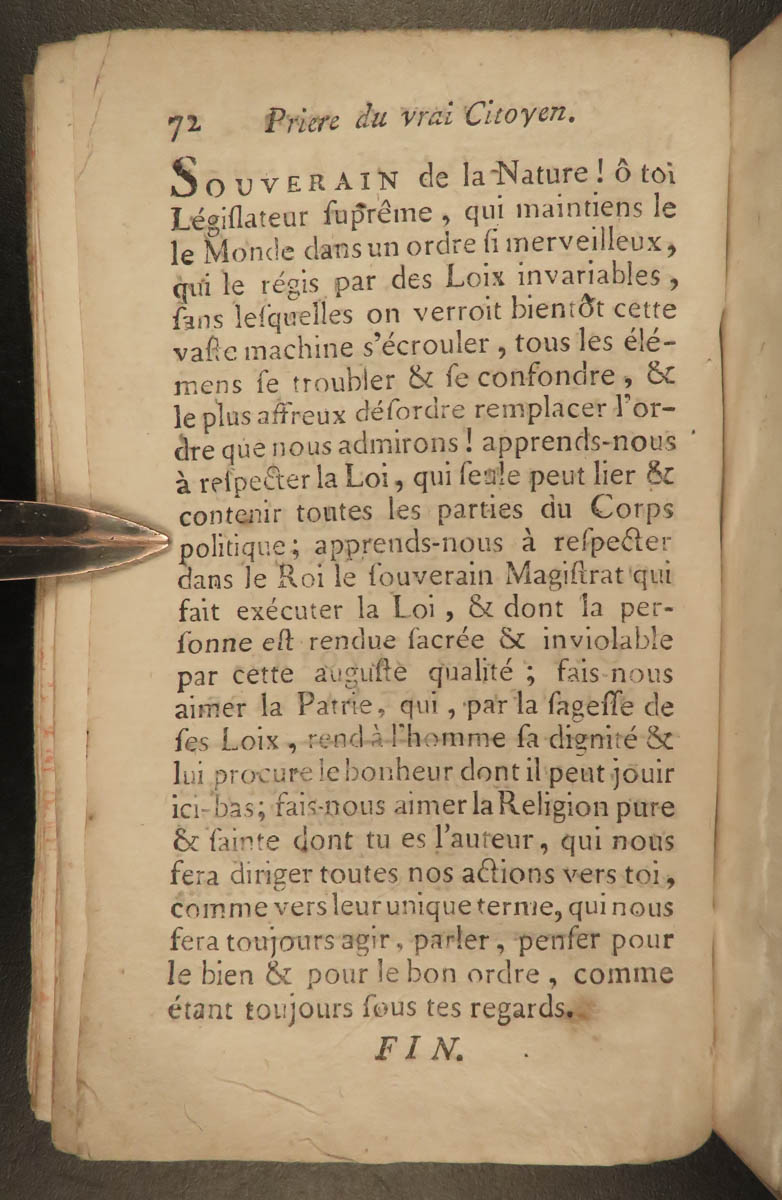 72 Priere du vrai Citoyen.
SOUVERAIN de la Nature! ô toi
Légiſlateur ſuprême, qui maintiens le
le Monde dans un ordre ſi merveilleux,
qui le régis par des Loix invariables,
ſans leſquelles on verroit bientôt cette
vaſte machine s'écrouler, tous les élé-
mens ſe troubler & ſe confondre, &
le plus affreux déſordre remplacer l'or-
dre que nous admirons! apprends-nous
à reſpecter la Loi, qui ſeule peut lier &
contenir toutes les parties du Corps
politique; apprends-nous à reſpecter
dans le Roi le ſouverain Magiſtrat qui
fait exécuter la Loi, & dont la per-
ſonne eſt rendue ſacrée & inviolable
par cette auguſte qualité; fais-nous
aimer la Patrie, qui, par la ſageſſe de
ſes Loix, rend à l'homme ſa dignité &
lui procure le bonheur dont il peut jouir
ici-bas; fais-nous aimer la Religion pure
& ſainte dont tu es l'auteur, qui nous
fera diriger toutes nos actions vers toi,
comme vers leur unique terme, qui nous
fera toujours agir, parler, penſer pour
le bien & pour le bon ordre, comme
étant toujours ſous tes regards.
FIN.